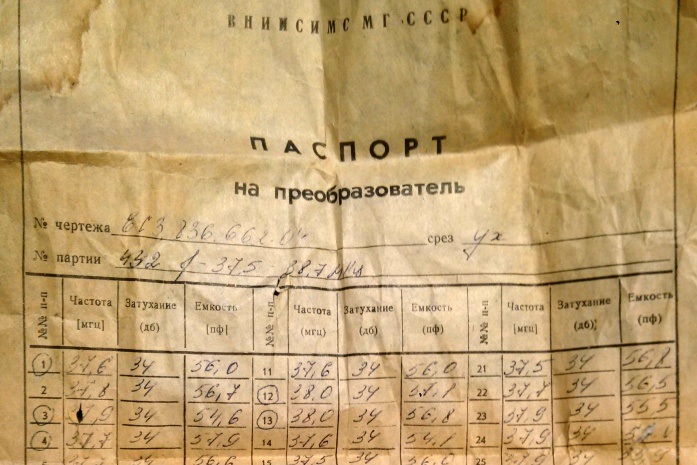 ВНИИСИМС МГ СССР
ПАСПОРТ
на преобразователь
№ чертежа срез ух
№ партии 432 f - 37,5 - 38,7 мгц
№№ п-п Частота [мгц] Затухание (дб) Емкость [пф] №№ п-п Частота (мгц) Затухание (дб) Емкость (пф) №№ п-п Частота [мгц] Затухание (дб) Емкость (пф)
1 37,6 34 56,0 11 37,6 34 56,0 21 37,5 34 56,8
2 37,8 34 56,7 12 38,0 34 57,1 22 37,7 34 56,5
3 37,9 34 54,6 13 38,0 34 56,8 23 37,9 34 55,5
4 37,7 34 57,9 14 37,6 34 54,1 24 37,9 34
34 56,6 15 37,5 34 56,0 25 37,9 34